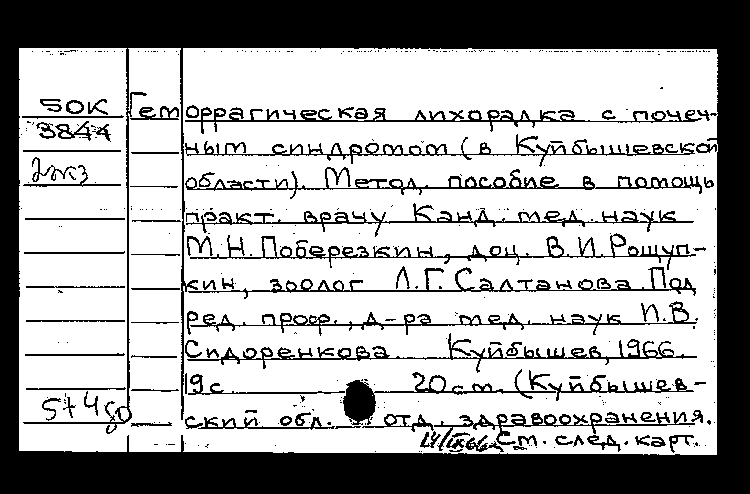 50К
3844
2жз
Геморрагическая лихорадка с почеч-
ным синдромом (в Куйбышевской
области). Метод. пособие в помощь
практ. врачу Канд. мед. наук
М.Н. Поберезкин, доц. В.И. Рощуп-
кин, зоолог Л.Г. Салтанова. Под
ред. проф., д-ра мед. наук П.В.
Сидоренкова Куйбышев, 1966.
19 с 20 см. (Куйбышев-
ский обл. отд. здравоохранения.
См. след. карт.